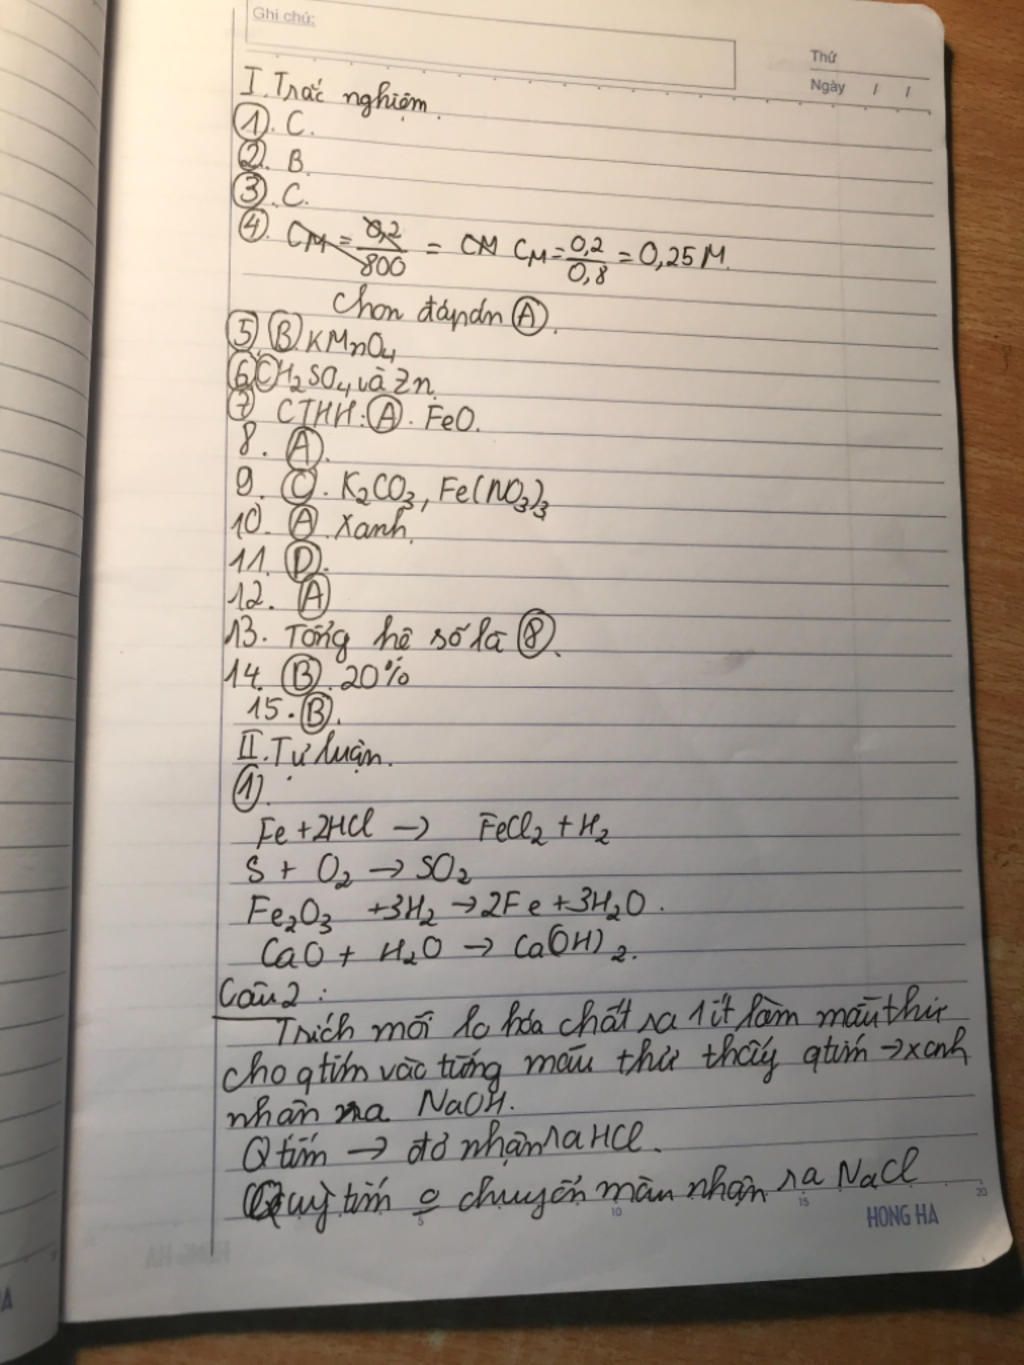 Ghi chú:
Thứ
Ngày / /
I. Trắc nghiệm.
1. C.
2. B.
3. C.
4. CM = 0,2/800 = CM CM = 0,2/0,8 = 0,25 M.
Chọn đáp án A.
5. B KMnO4
6. C H2SO4 và Zn.
7 CTHH: A. FeO.
8. A.
9. C. K2CO3, Fe(NO3)3
10. A. Xanh.
11. D.
12. A
13. Tổng hệ số là 8.
14. B. 20%
15. B.
II. Tự luận.
1.
Fe + 2HCl → FeCl2 + H2
S + O2 → SO2
Fe2O3 + 3H2 → 2Fe + 3H2O.
CaO + H2O → Ca(OH)2.
Câu 2:
Trích mỗi lọ hóa chất ra 1 ít làm mẫu thử
cho q tím vào từng mẫu thử thấy q tím → xanh
nhận ra NaOH.
Q tím → đỏ nhận ra HCl.
Quỳ tím o chuyển màu nhận ra NaCl
5 10 15 20
HONG HA